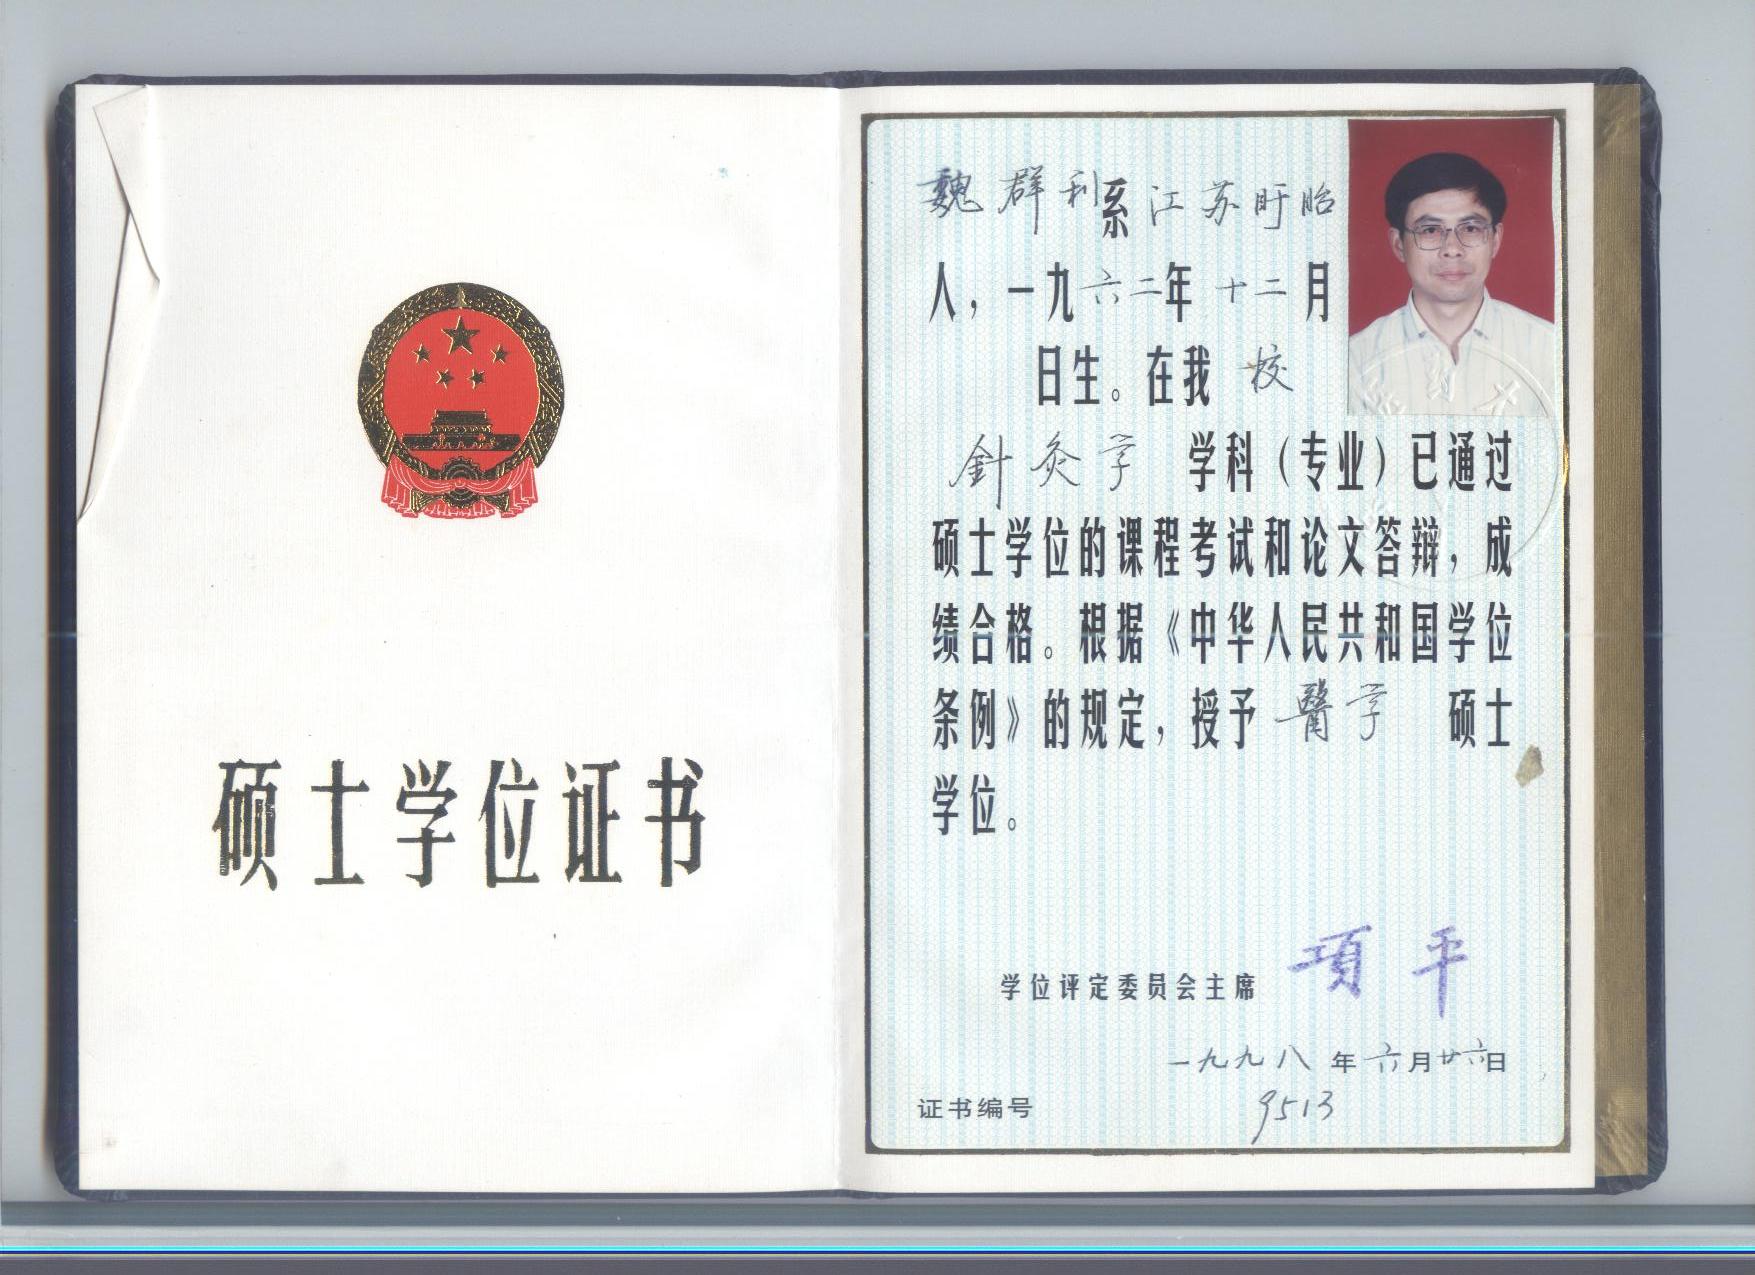 硕士学位证书
魏群利系江苏盱眙
人，一九六二年十二月
日生。在我校
針灸学 学科（专业）已通过
硕士学位的课程考试和论文答辩，成
绩合格。根据《中华人民共和国学位
条例》的规定，授予醫学 硕士
学位。
学位评定委员会主席 項平
一九九八年六月廿六日
证书编号 9513